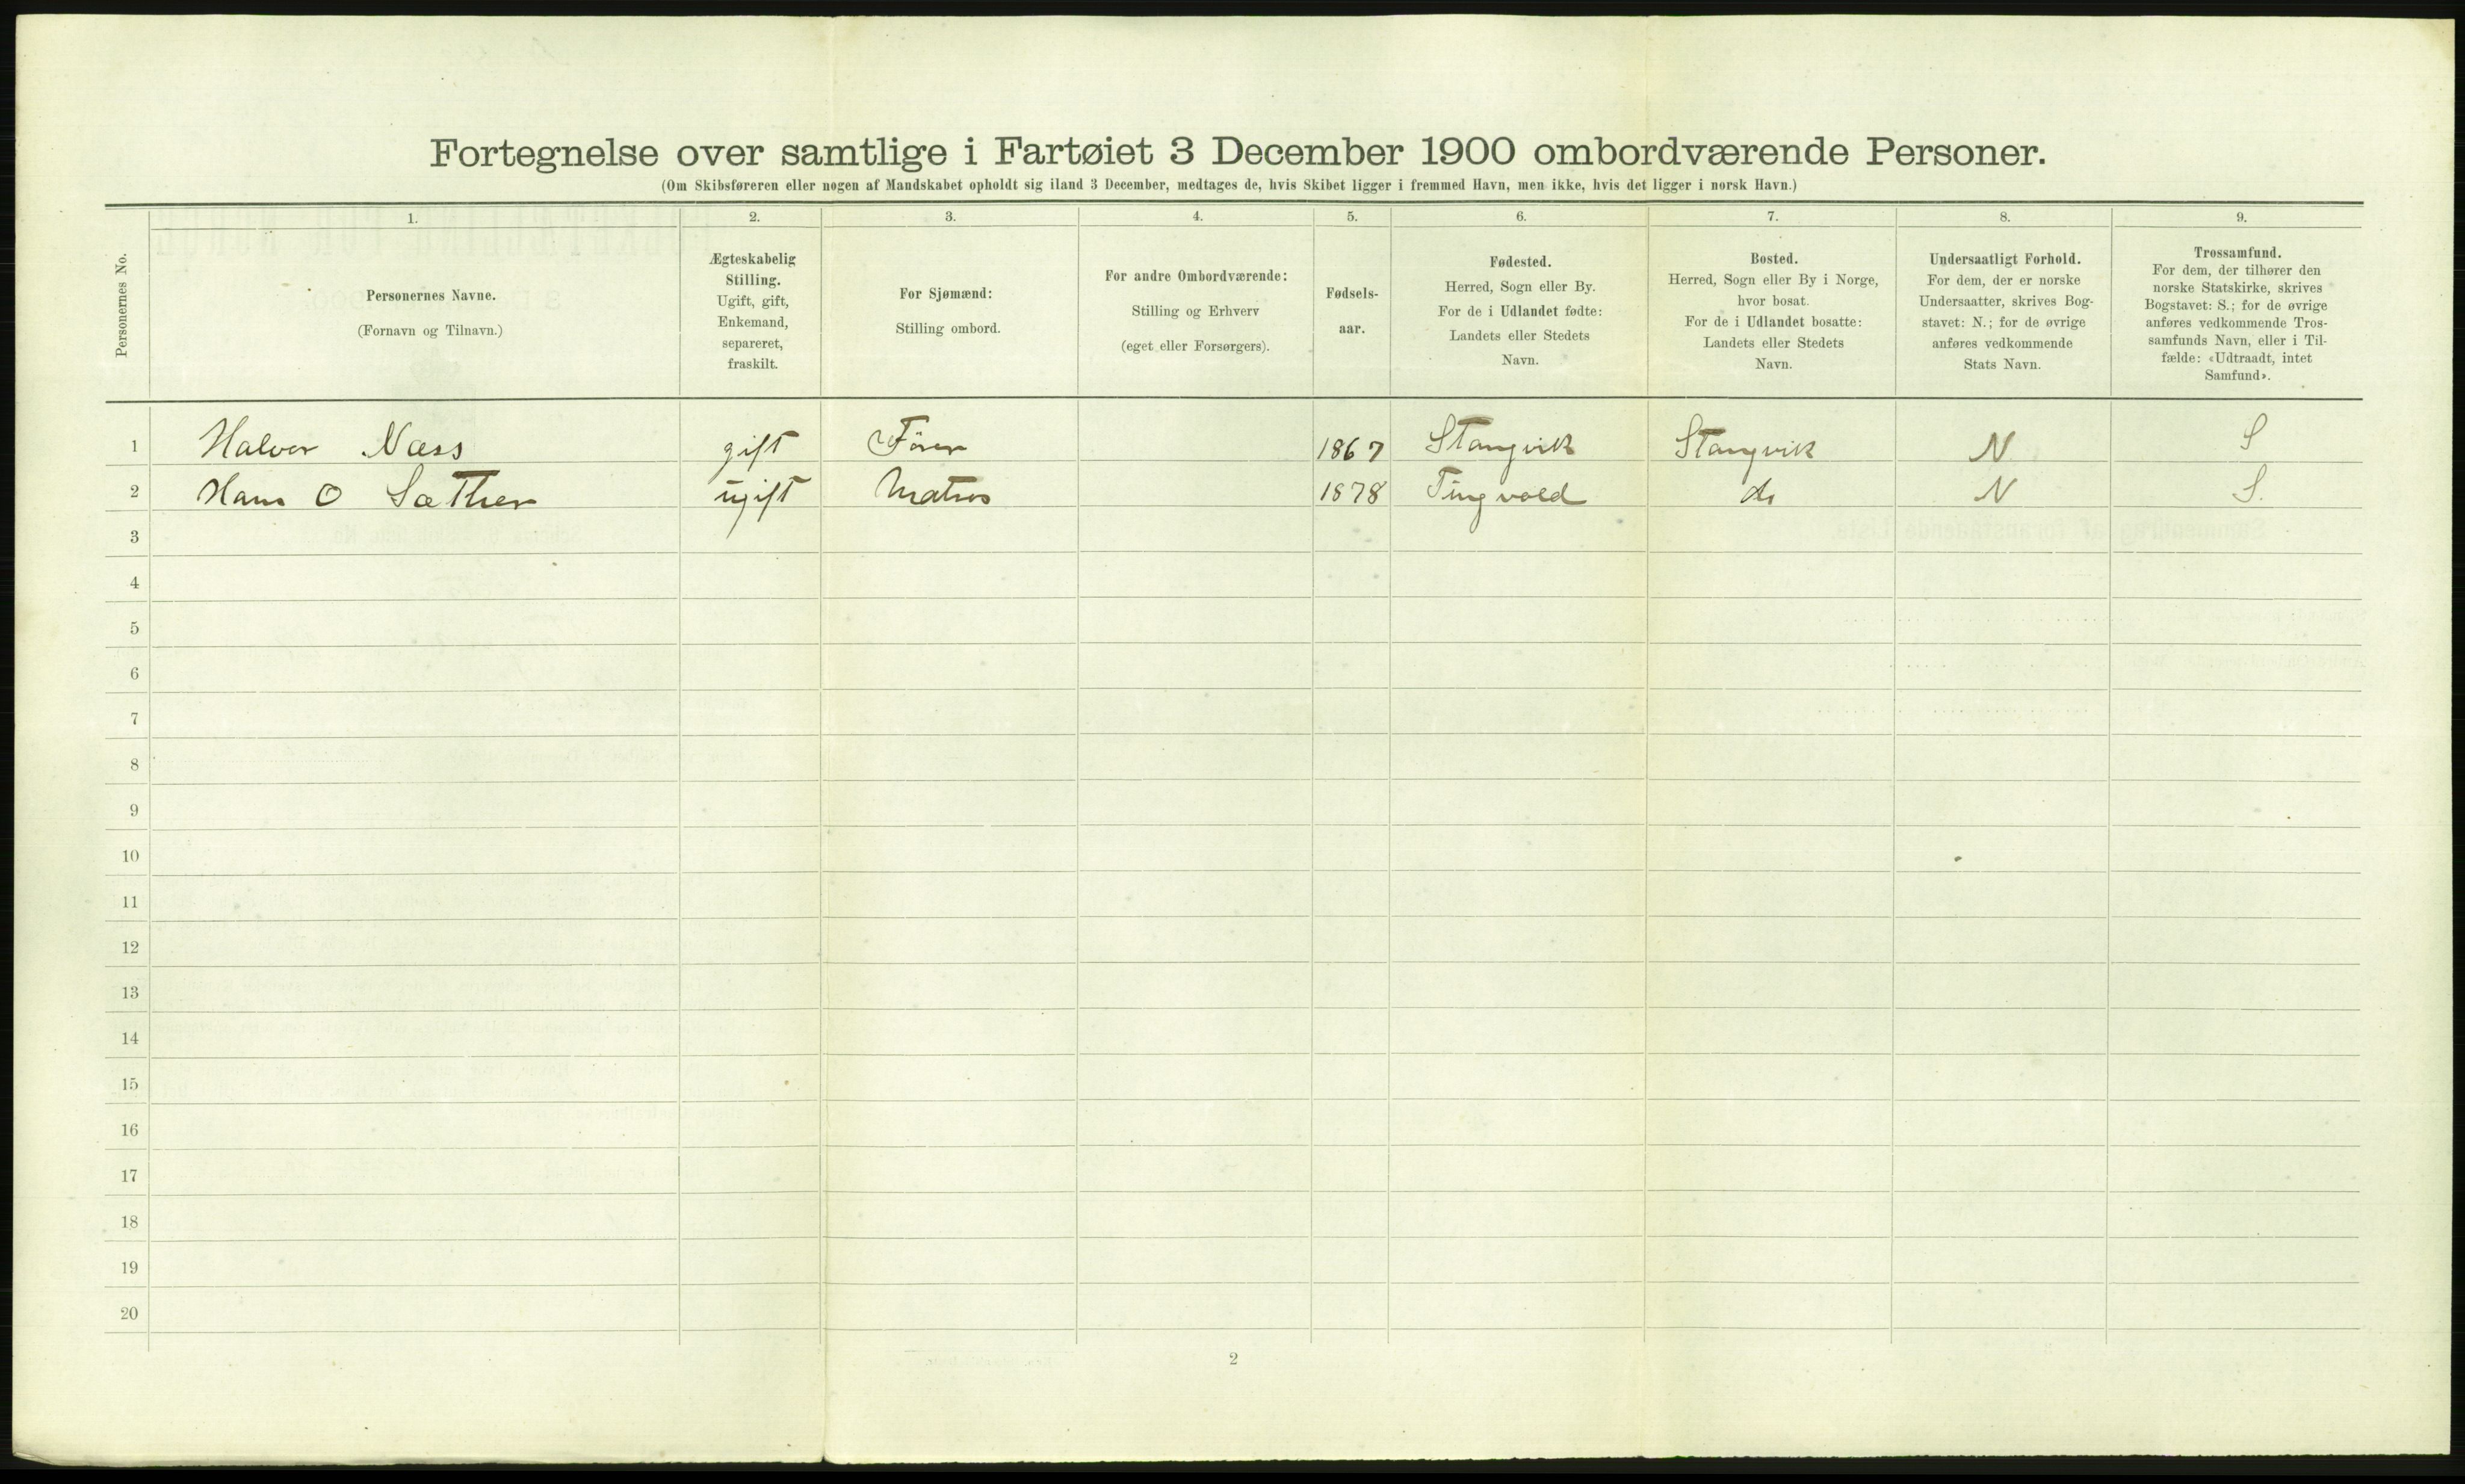 Fortegnelse over samtlige i Fartøiet 3 December 1900 ombordværende Personer.
(Om Skibsføreren eller nogen af Mandskabet opholdt sig iland 3 December, medtages de, hvis Skibet ligger i fremmed Havn, men ikke, hvis det ligger i norsk Havn.)
Personernes No.
1.
Personernes Navne.
(Fornavn og Tilnavn.)
2.
Ægteskabelig
Stilling.
Ugift, gift,
Enkemand,
separeret,
fraskilt.
3.
For Sjømænd:
Stilling ombord.
4.
For andre Ombordværende:
Stilling og Erhverv
(eget eller Forsørgers).
5.
Fødsels-
aar.
6.
Fødested.
Herred, Sogn eller By.
For de i Udlandet fødte:
Landets eller Stedets
Navn.
7.
Bosted.
Herred, Sogn eller By i Norge,
hvor bosat.
For de i Udlandet bosatte:
Landets eller Stedets
Navn.
8.
Undersaatligt Forhold.
For dem, der er norske
Undersaatter, skrives Bog-
stavet: N.; for de øvrige
anføres vedkommende
Stats Navn.
9.
Trossamfund.
For dem, der tilhører den
norske Statskirke, skrives
Bogstavet: S.; for de øvrige
anføres vedkommende Tros-
samfunds Navn, eller i Til-
fælde: «Udtraadt, intet
Samfund».
1 Halvor Næss gift Förer 1867 Stangvik Stangvik N S
2 Hans O Sæther ugift Matros 1878 Tingvold do N S.
3
4
5
6
7
8
9
10
11
12
13
14
15
16
17
18
19
20
2